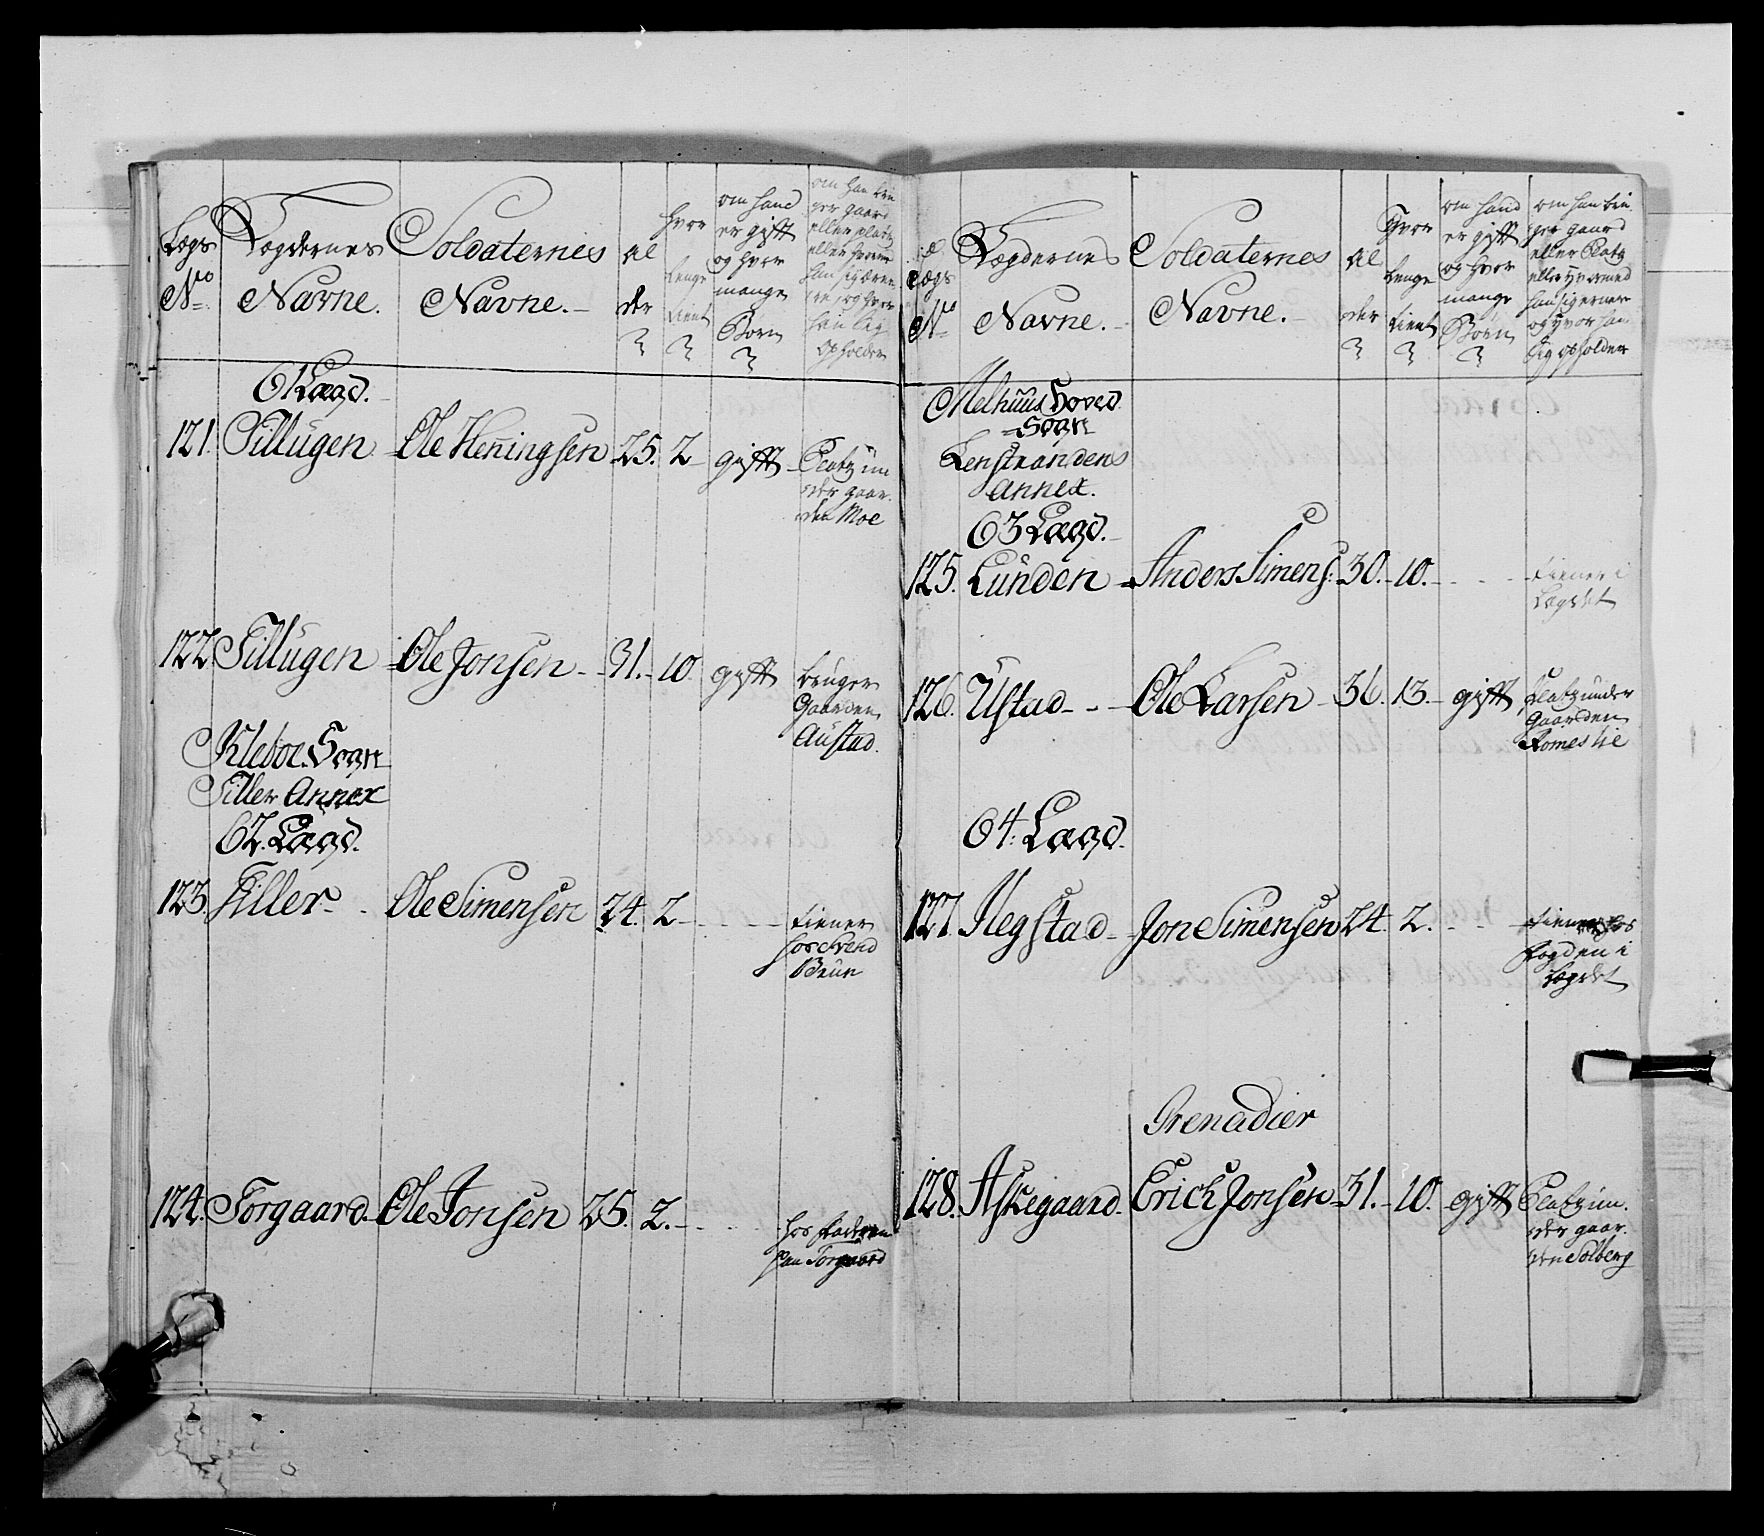 Lægs No
Lægdernes Navne.
Soldaternes Navne.
al der
hvor lenge tient
om hand er gift og hvor mange Börn
61 Lægd.
121. Tillugen Ole Heningsen 25. 2 gift Platz un
der gaar
den Moe
122 Tillugen Ole Jonsen 31. 10. gift bruger
Gaarden
Austad.
Kleboe Sogn
Tiller Annex
62. Lægd.
123. Tiller Ole Simensen 24. 2 tiener
hos Svend
Brun
124. Torgaard Ole Jonsen 25. 2. hos Faderen
paa Torgaard
Lægs No
Lægdernes Navne.
Soldaternes Navne.
al der
Hvor lenge tient
om hand er gift og hvor mange Börn
om han bru
ger gaard
eller Platz
eller hvormed
han sig ernær
og hvor han
sig opholder
Melhuus Hoved
Sogn
Lenstrandens
Annex.
63 Lægd.
125. Lunden Anders Simens: 30. 10. tiener i
Lægdet
126. Ustad Ole Larsen 36. 13. gift Platz under
Gaarden
Romeslie
64. Lægd.
127. Negstad Jon Simensen 24. 2. tiener hos
Fogden i
Lægdet
Grenadier
128. Askegaard Erich Jonsen 31. 10. gift Platz un
der gaar
den Solberg